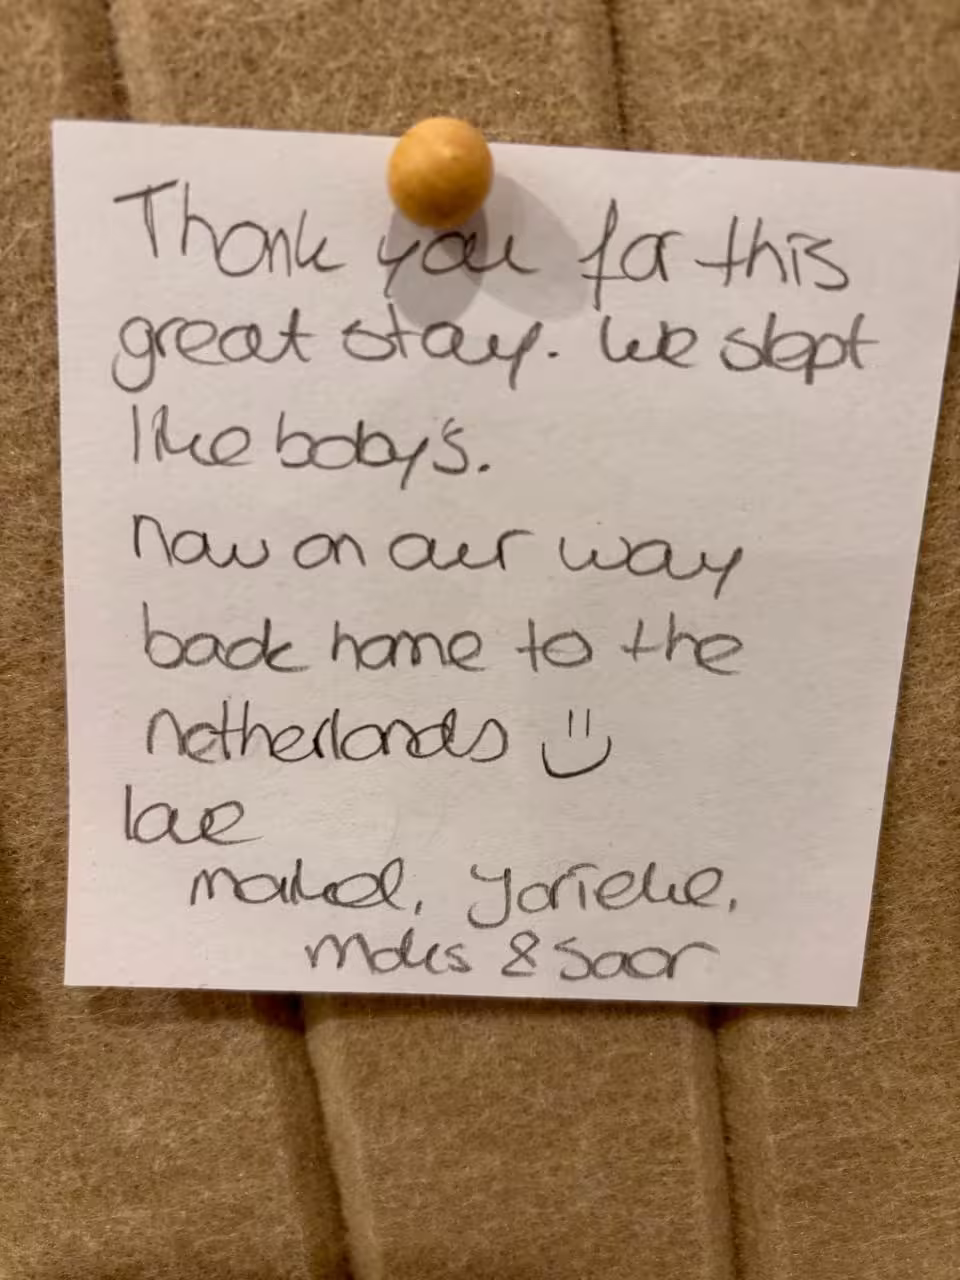 Thank you for this
great stay. We slept
like baby's.
now on our way
back home to the
netherlands
love
Yorieke,
& Saar